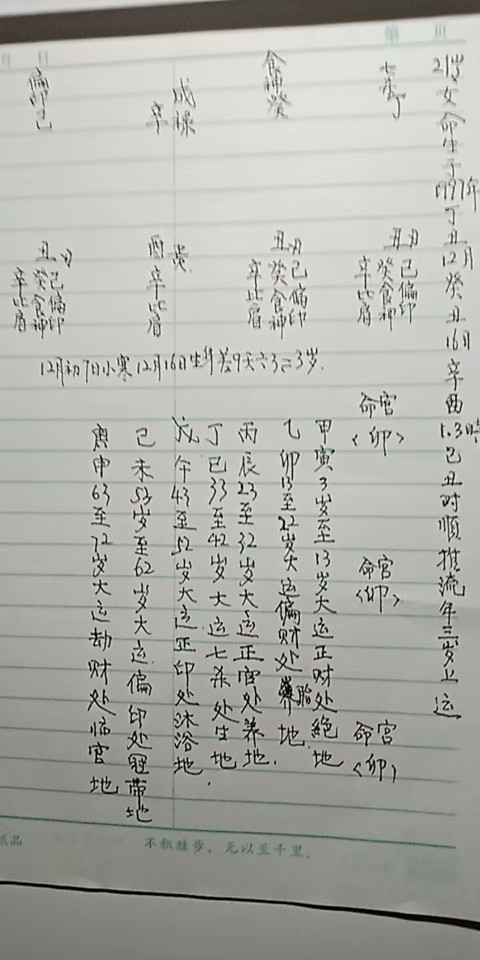 第 页
月 日
21岁女命生于1997年丁丑12月癸丑16日辛酉1.3時己丑时顺推流年三岁上运
七杀丁
食神癸
戌禄
辛
偏印己
丑月
己偏印
癸食神
辛比肩
丑月
己偏印
癸食神
辛比肩
酉
辛比肩
丑月
己偏印
癸食神
辛比肩
12月初7日小寒12月16日生
命宫
<卯>
命宫
<卯>
命宫
<卯>
甲寅3岁至13岁大运正财处絕地
乙卯13至22岁大运偏财处胎地.
丙辰23至32岁大运正官处养地.
丁巳33至42岁大运七杀处生地.
戊午43至52岁大运正印处沐浴地
己未53岁至62岁大运偏印处冠带地
庚申63至72岁大运劫财处临官地
纸品
不积跬步，无以至千里.